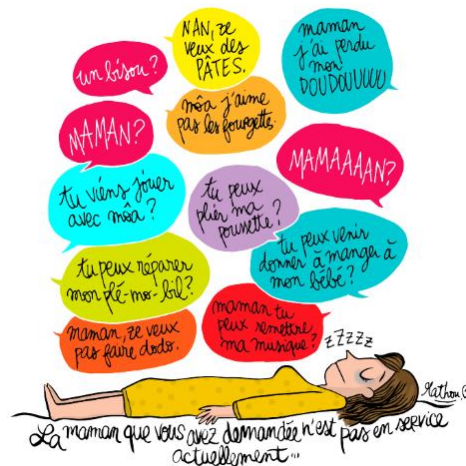 un bisou?
NAN, ze
veux des
PÂTES.
maman
j'ai perdu
mon
DOUDOUUUU
MAMAN?
môa j'aime
pas les fourgettes.
MAMAAAAN?
tu viéns jouer
avec moa?
tu peux
plier ma
pousette?
tu peux venir
donner à manger à
mon bébé?
tu peux réparer
mon plé-mo-bil?
maman, ze veux
pas faire dodo.
maman tu
peux remettre
ma musique?
zZZZZ
Mathou
La maman que vous avez demandée n'est pas en service
actuellement...